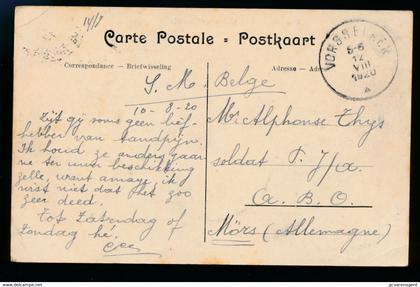 14/8
Carte Postale - Postkaart
Correspondance – Briefwisseling
Adresse – Adres
VORSSELAER
5-6
12
VIII
1920
S. M. Belge
10-8-20
Zijt gij soms geen lief-
hebber van tandpijn.
Ik houd ze anders gaar-
ne ter uwe beschikking
zelle, want amaij, ik
wist niet dat het zoo
zeer deed.
Tot Zaterdag of
Zondag hé.
Mr Alphonse Thys
soldat T.
A. B. O.
Mörs (Allemagne)